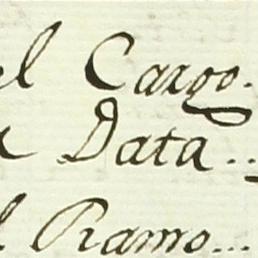 el Cargo.
Data..
l Ramo...